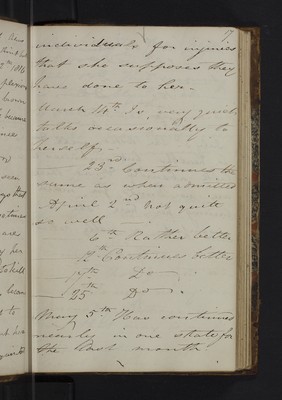 7
individuals for injuries
that she supposes they
have done to her -
March 14th Is very quiet
talks occasionally to
herself -
— 23rd Continues the
same as when admitted
April 2nd Not quite
so well
6th Rather better
12th Continues better
17th Do
— 25th Do -
May 5th Has continued
nearly in one state for
the last month